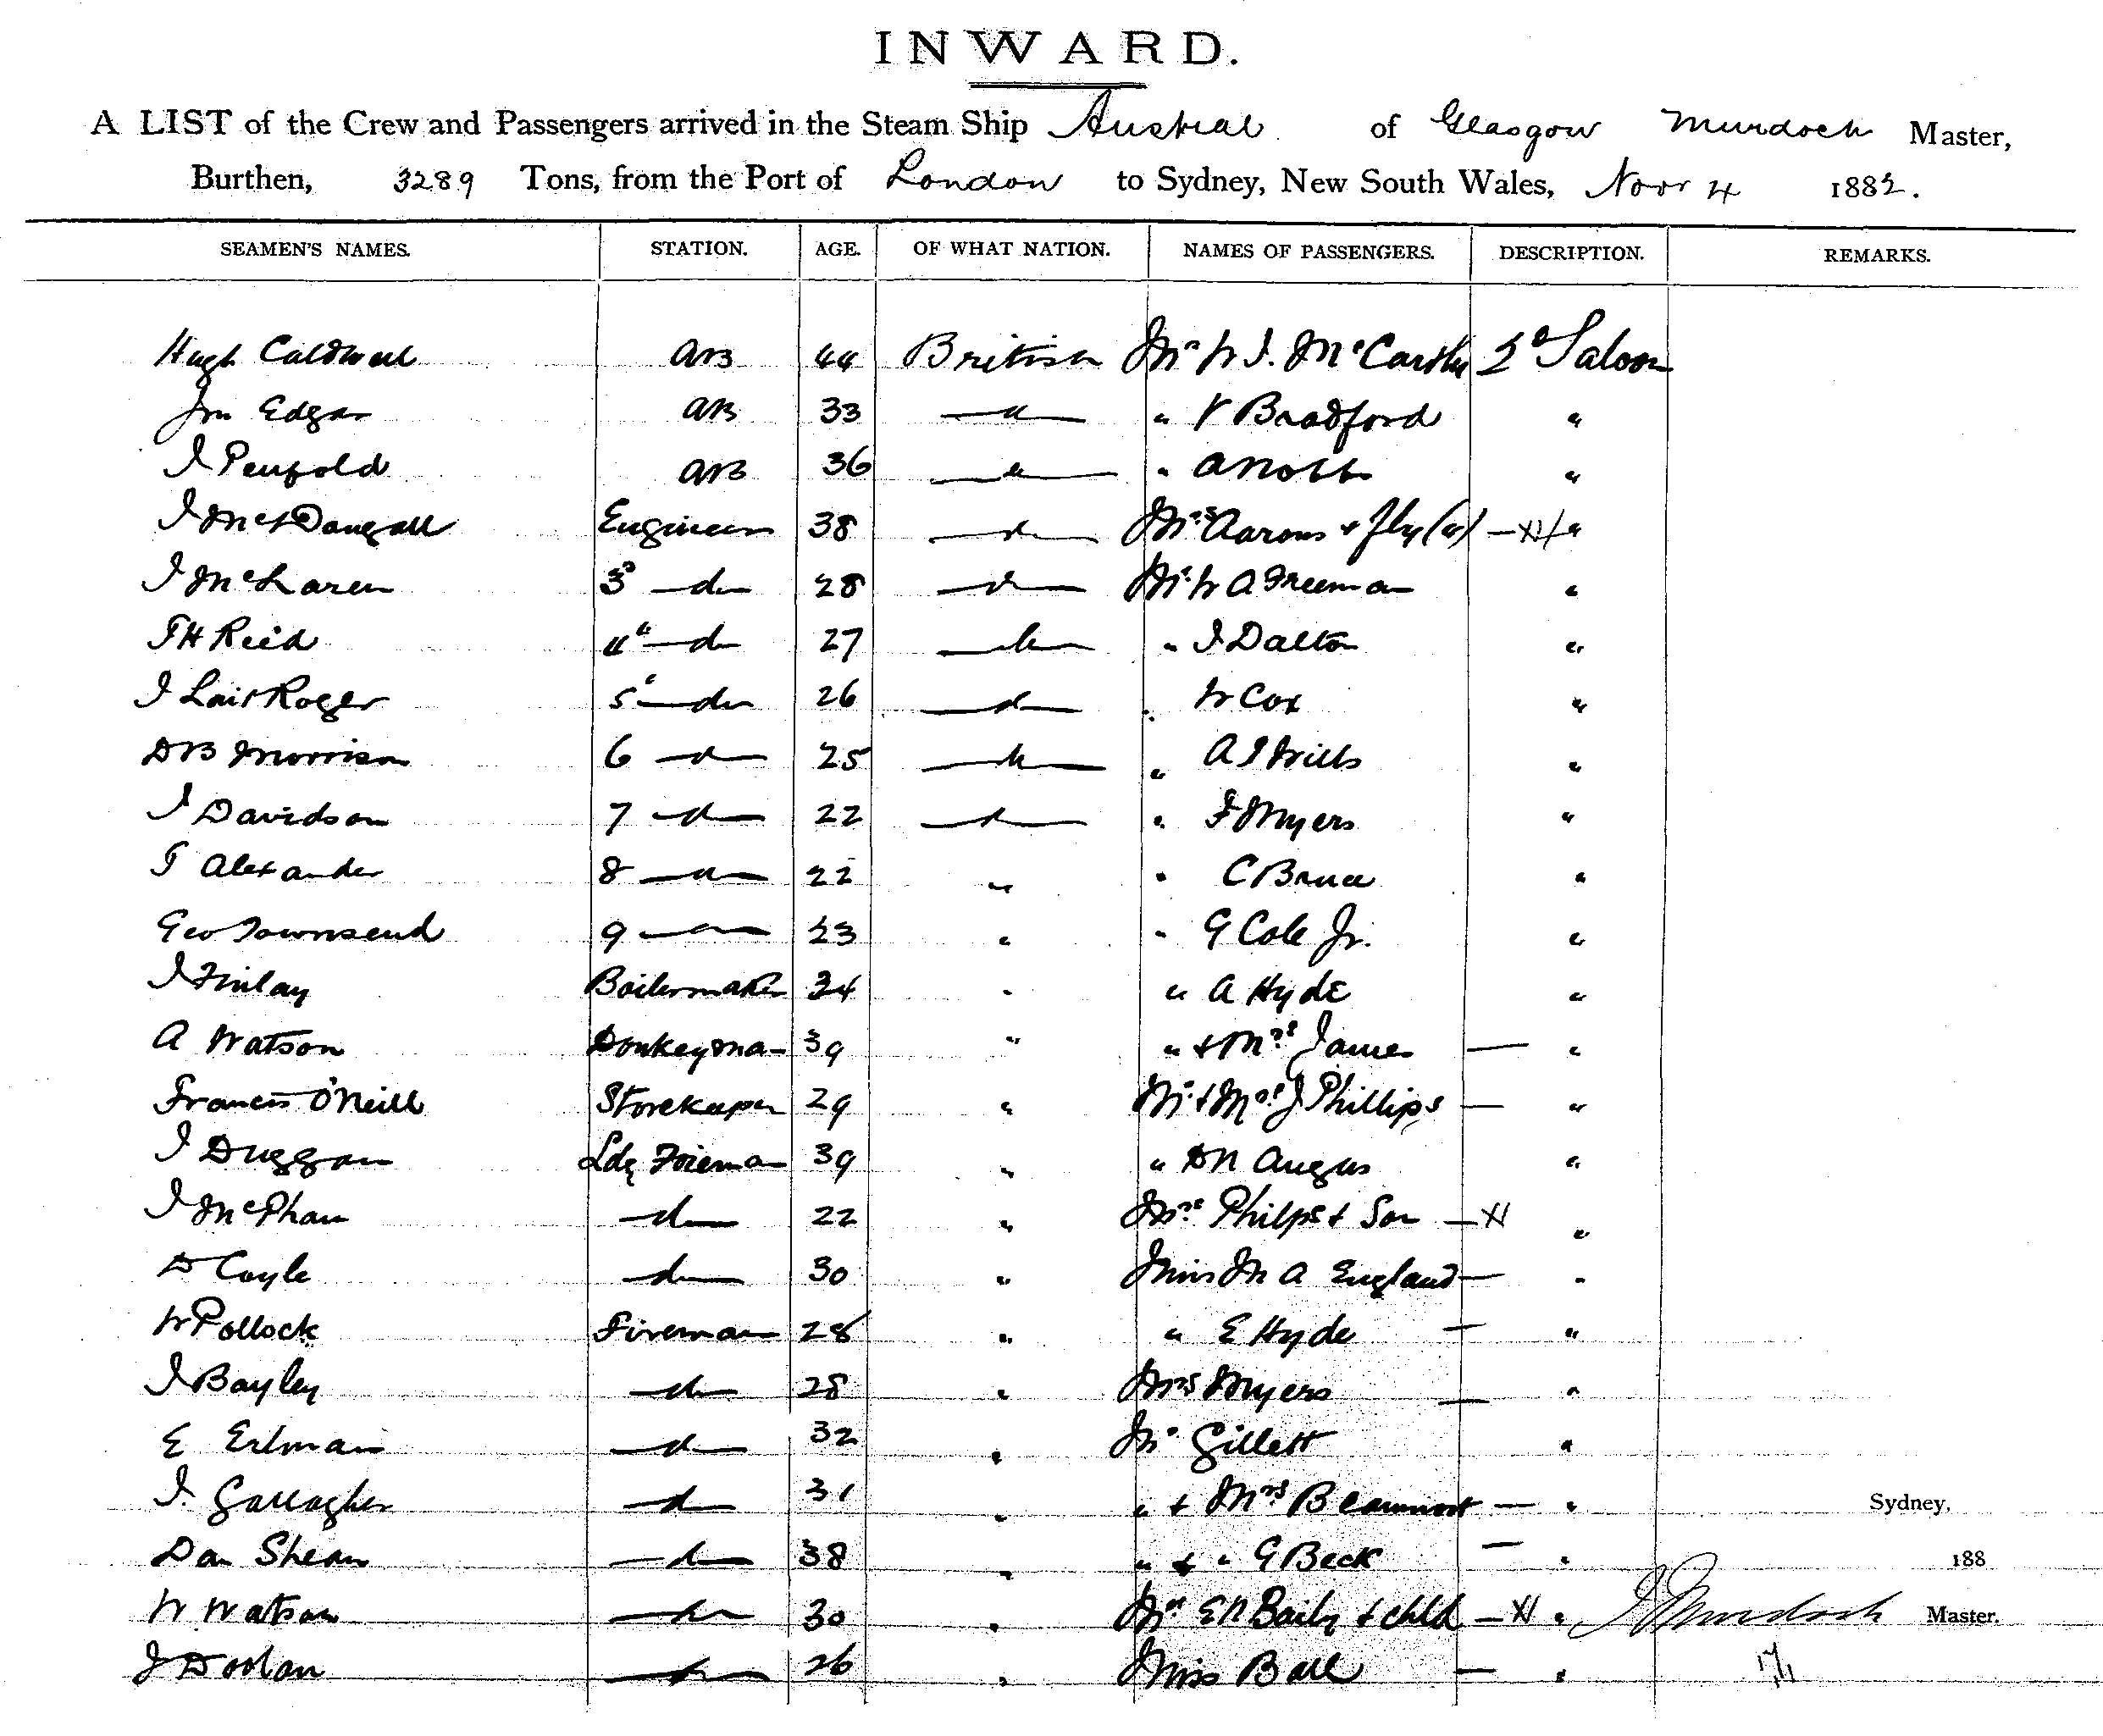 INWARD.
A LIST of the Crew and Passengers arrived in the Steam Ship Austral of Glasgow Murdoch Master,
Burthen, 3289 Tons, from the Port of London to Sydney, New South Wales, Novr 4 1882.
SEAMEN'S NAMES. STATION. AGE. OF WHAT NATION. NAMES OF PASSENGERS. DESCRIPTION. REMARKS.
Hugh Caldwell AB 44 British Mr W J. McCarthy 2d Saloon
Jno Edgar AB 33 " " V Bradford "
J Penfold AB 36 " " A Nobbs "
J McDougall Engineer 38 " Mrs Aarons + fly (4) "
J McLaren 3d do 28 " Mr W A Freeman "
T H Reid 4th do 27 " " J Dalton "
J Lait Roger 5th do 26 " " W Cox "
D B Morrison 6 do 25 " " A J Mills "
J Davidson 7 do 22 " " F Myers "
T Alexander 8 " 22 " " C Bruce "
Geo Townsend 9 " 23 " " G Cole Jr. "
J Finlay Boilermaker 34 " " A Hyde "
A Watson Donkeyman 39 " " + Mrs James "
Francis O'Neill Storekeeper 29 " Mr + Mrs J Phillips "
J Duggan Ldg Fireman 39 " " D N Angus "
J McPhan do 22 " Mrs Philps + Son "
D Coyle do 30 " Miss M A England "
W Pollock Fireman 28 " " E Hyde "
J Bayley do 28 " Mrs Myers "
E Erlman do 32 " Mr Gillett "
J. Gallagher do 31 " " + Mrs Beaumont " Sydney,
Dan Shean do 38 " " + " G Beck " 188
W Watson do 30 " E N Baily + chld " J Murdoch Master.
J Doolan do 26 " Miss Ball "